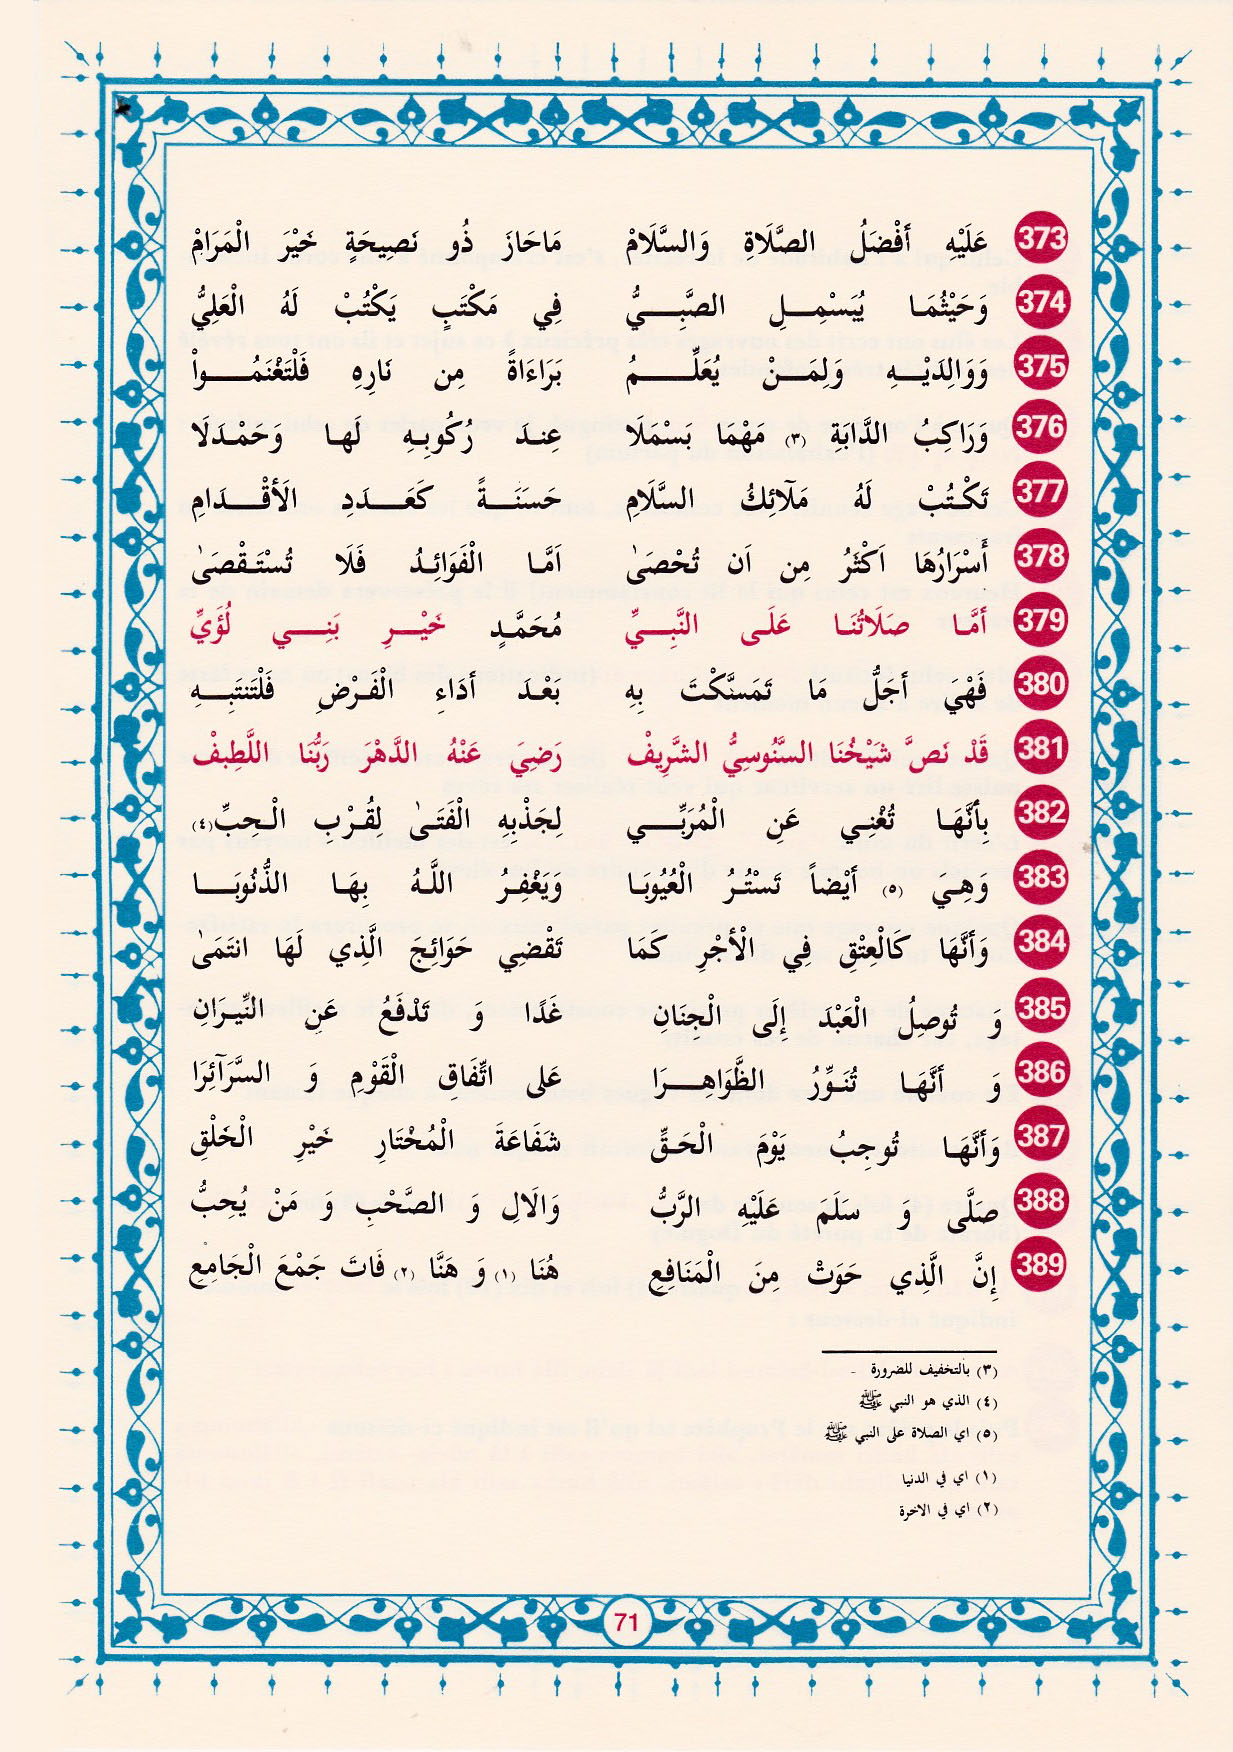 373 عَلَيْهِ أَفْضَلُ الصَّلَاةِ وَالسَّلَامْ مَاحَازَ ذُو نَصِيحَةٍ خَيْرَ الْمَرَامْ
374 وَحَيْثُمَا يُبَسْمِلِ الصَّبِيُّ فِي مَكْتَبٍ يَكْتُبْ لَهُ الْعَلِيُّ
375 وَوَالِدَيْهِ وَلِمَنْ يُعَلِّمُ بَرَاءَاةً مِن نَارِهِ فَلْتَغْنَمُواْ
376 وَرَاكِبُ الدَّابَةِ (٣) مَهْمَا بَسْمَلَا عِندَ رُكُوبِهِ لَهَا وَحَمْدَلَا
377 تَكْتُبْ لَهُ مَلَآئِكُ السَّلَامِ حَسَنَةً كَعَدَدِ الَأقْدَامِ
378 أَسْرَارُهَا اَكْثَرُ مِن اَن تُحْصَىٰ اَمَّا الْفَوَائِدُ فَلَا تُسْتَقْصَىٰ
379 أمَّا صَلَاتُنَا عَلَى النَّبِيِّ مُحَمَّدٍ خَيْرِ بَنِي لُؤَيِّ
380 فَهْيَ أجَلُّ مَا تَمَسَّكْتَ بِهِ بَعْدَ أدَاءِ الْفَرْضِ فَلْتَنتَبِهِ
381 قَدْ نَصَّ شَيْخُنَا السَّنُوسِيُّ الشَّرِيفْ رَضِيَ عَنْهُ الدَّهْرَ رَبُّنَا اللَّطِيفْ
382 بِأَنَّهَا تُغْنِي عَنِ الْمُرَبِّي لِجَذْبِهِ الْفَتَىٰ لِقُرْبِ الْحِبِّ (٤)
383 وَهِيَ (٥) أَيْضاً تَسْتُرُ الْعُيُوبَا وَيَغْفِرُ اللَّهُ بِهَا الذُّنُوبَا
384 وَأَنَّهَا كَالْعِتْقِ فِي الْأجْرِ كَمَا تَقْضِي حَوَائِجَ الَّذِي لَهَا انتَمَىٰ
385 وَ تُوصِلُ الْعَبْدَ إِلَى الْجِنَانِ غَدًا وَ تَدْفَعُ عَنِ النِّيرَانِ
386 وَ أنَّهَا تُنَوِّرُ الظَّوَاهِرَا عَلى اتِّفَاقِ الْقَوْمِ وَ السَّرَآئِرَا
387 وَأَنَّهَا تُوجِبُ يَوْمَ الْحَقِّ شَفَاعَةَ الْمُخْتَارِ خَيْرِ الْخَلْقِ
388 صَلَّى وَ سَلَمَ عَلَيْهِ الرَّبُّ وَالَالِ وَ الصَّحْبِ وَ مَنْ يُحِبُّ
389 إِنَّ الَّذِي حَوَتْ مِنَ الْمَنَافِعِ هُنَا (١) وَ هَنَّا (٢) فَاتَ جَمْعَ الْجَامِعِ
(٣) بالتخفيف للضرورة -
(٤) الذي هو النبي ﷺ
(٥) اي الصلاة على النبي ﷺ
(١) اي في الدنيا
(٢) اي في الاخرة
71